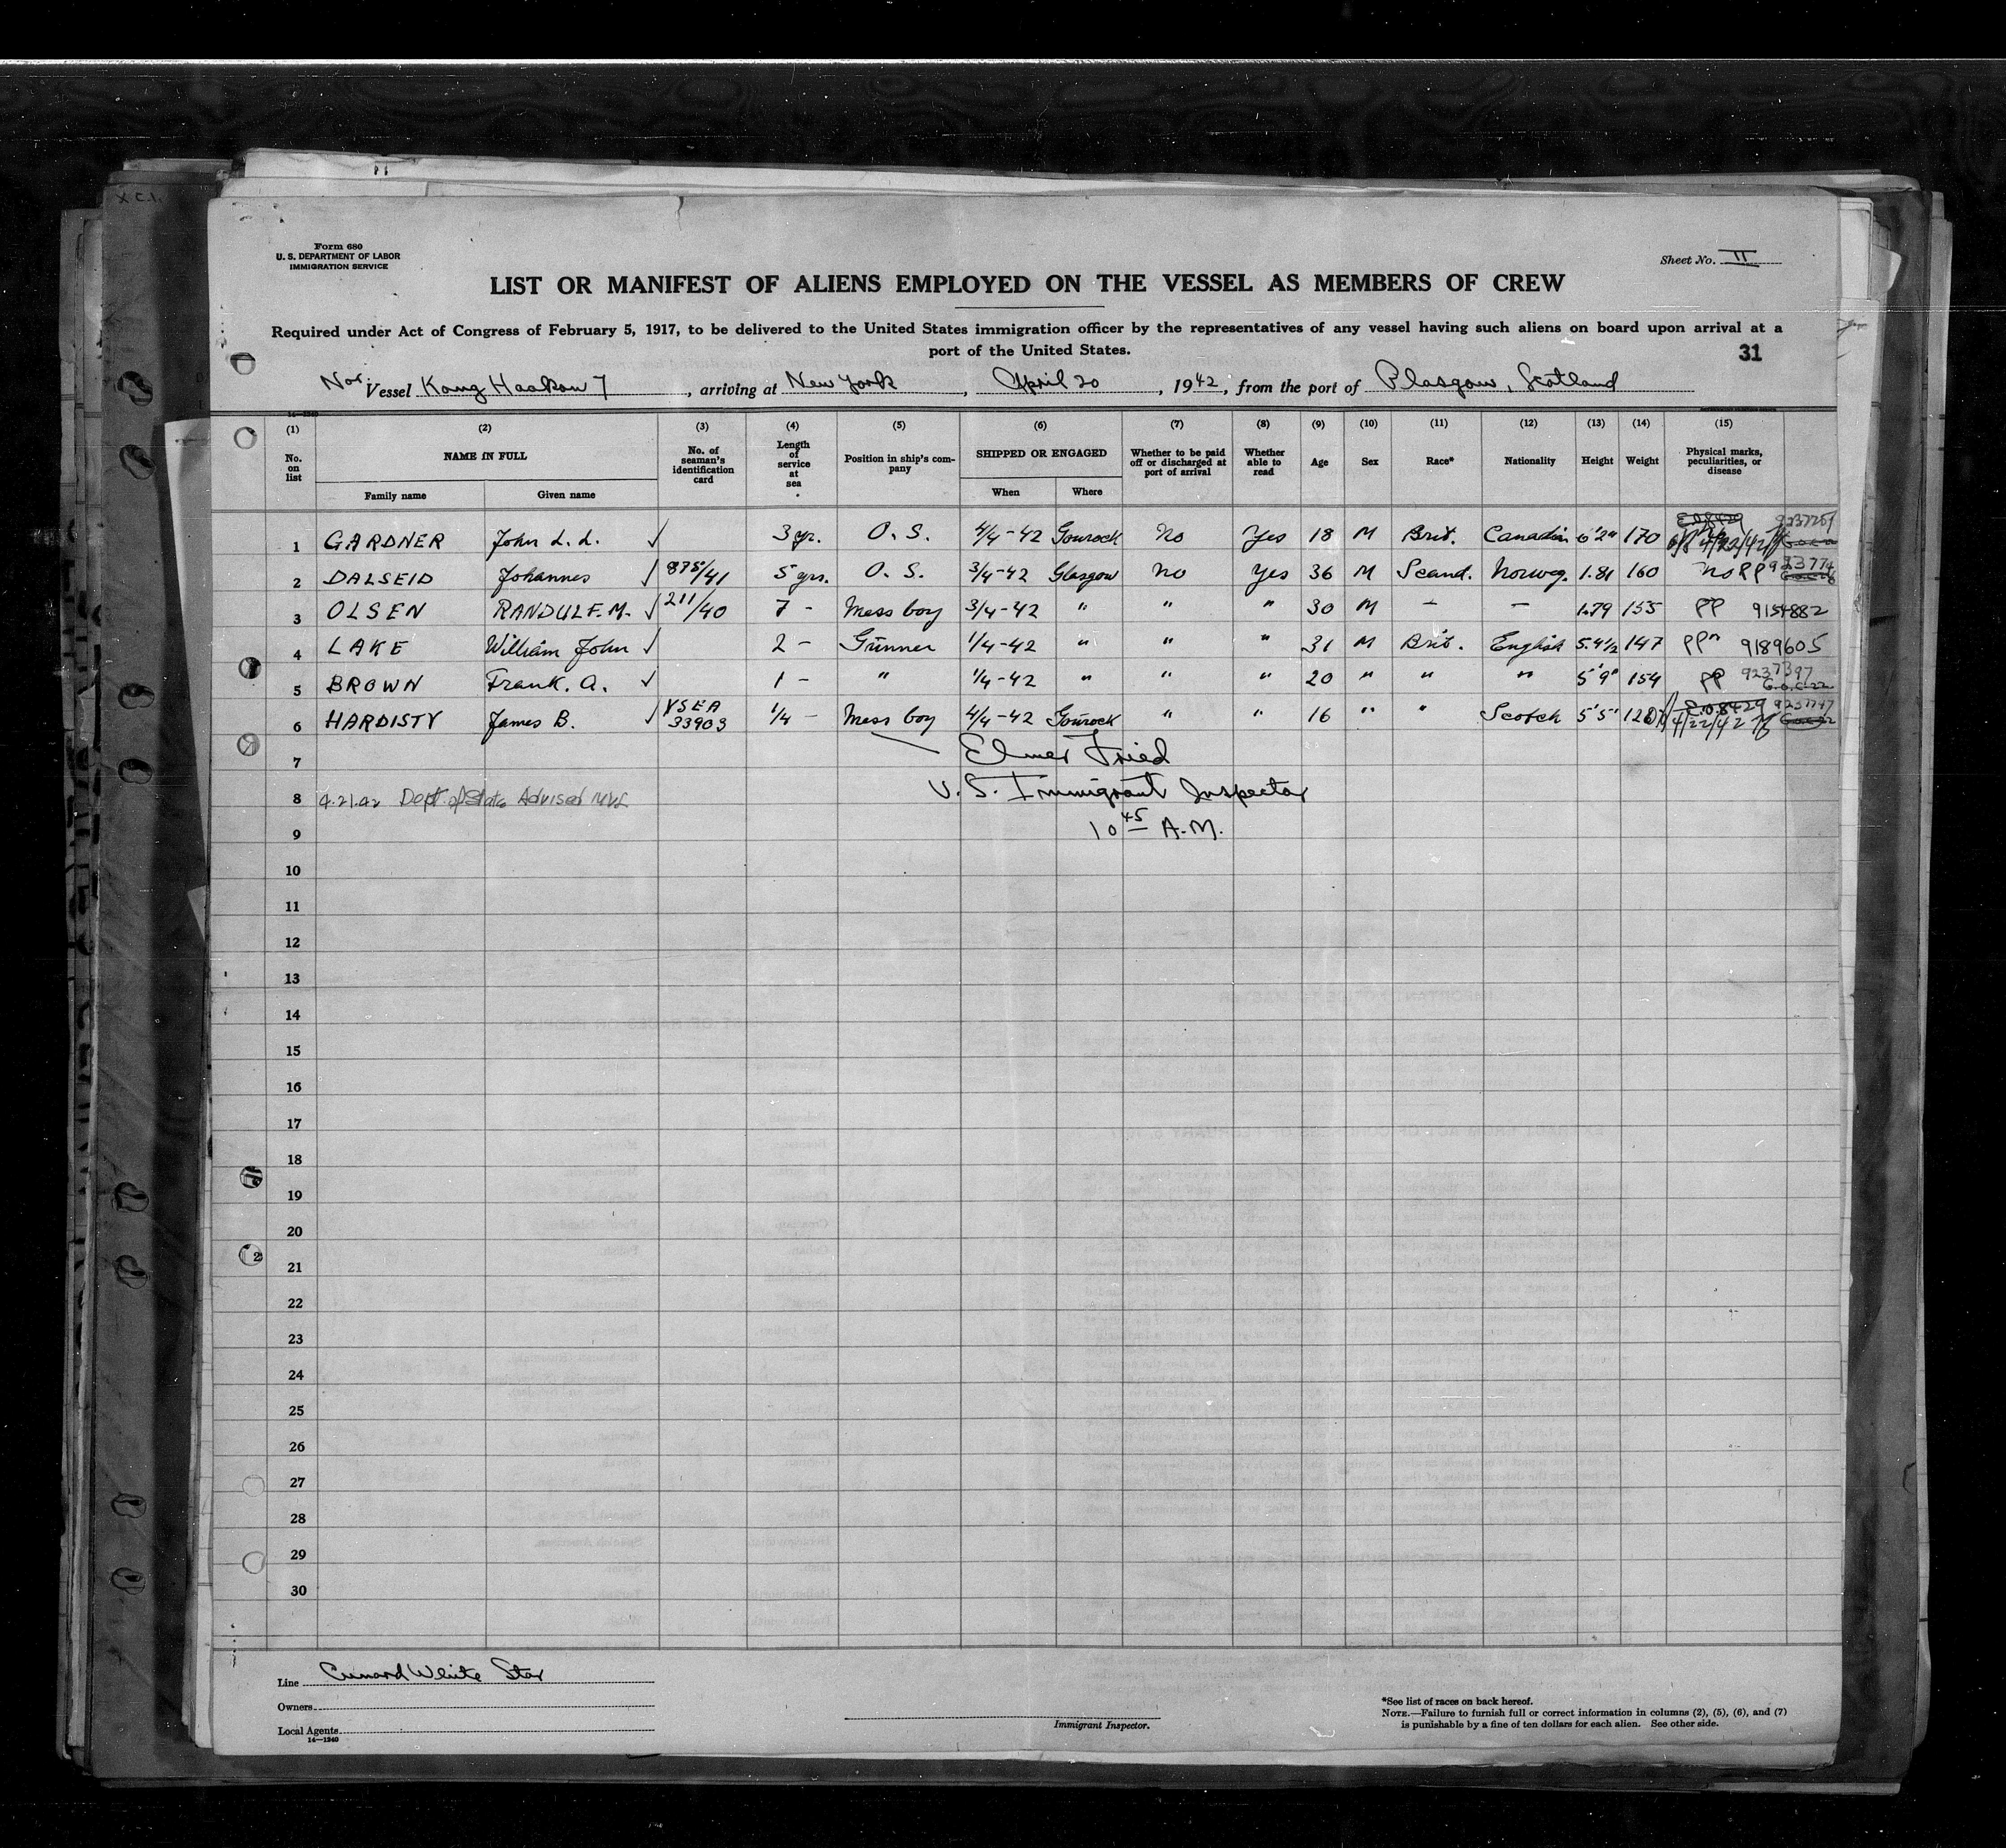 Form 680
U. S. DEPARTMENT OF LABOR
IMMIGRATION SERVICE
Sheet No. II
LIST OR MANIFEST OF ALIENS EMPLOYED ON THE VESSEL AS MEMBERS OF CREW
Required under Act of Congress of February 5, 1917, to be delivered to the United States immigration officer by the representatives of any vessel having such aliens on board upon arrival at a
port of the United States.
31
Nor. Vessel Kong Haakon 7, arriving at New York, April 20, 1942, from the port of Glasgow, Scotland
14—1240
(1) (2) (3) (4) (5) (6) (7) (8) (9) (10) (11) (12) (13) (14) (15)
No. on list NAME IN FULL Family name Given name No. of seaman's identification card Length of service at sea Position in ship's company SHIPPED OR ENGAGED When Where Whether to be paid off or discharged at port of arrival Whether able to read Age Sex Race* Nationality Height Weight Physical marks, peculiarities, or disease
1 GARDNER John L. L. ✓ 3 yr. O. S. 4/4-42 Gourock No Yes 18 M Brit. Canadian 6'2" 170 4/22/42
2 DALSEID Johannes ✓ 875/41 5 yrs. O. S. 3/4-42 Glasgow No Yes 36 M Scand. Norweg. 1.81 160 No PP
3 OLSEN RANDULF. M. ✓ 211/40 7 - Mess boy 3/4-42 " " " 30 M - - 1.79 155 PP 9154882
4 LAKE William John ✓ 2 - Gunner 1/4-42 " " " 31 M Brit. English 5.4½ 147 PP 9189605
5 BROWN Frank. A. ✓ 1 - " 1/4-42 " " " 20 " " " 5'9" 154 PP 9237397
6 HARDISTY James B. ✓ VSEA 33903 1/4 - Mess boy 4/4-42 Gourock " " 16 " " Scotch 5'5" E.O. 8429 4/22/42
7 Elmer Fried
8 4.21.42 Dept. of State Advised U. S. Immigrant Inspector
9 10 45 A.M.
10
11
12
13
14
15
16
17
18
19
20
21
22
23
24
25
26
27
28
29
30
Line Cunard White Star
Owners
Local Agents
14—1240
Immigrant Inspector.
*See list of races on back hereof.
NOTE.—Failure to furnish full or correct information in columns (2), (5), (6), and (7)
is punishable by a fine of ten dollars for each alien. See other side.